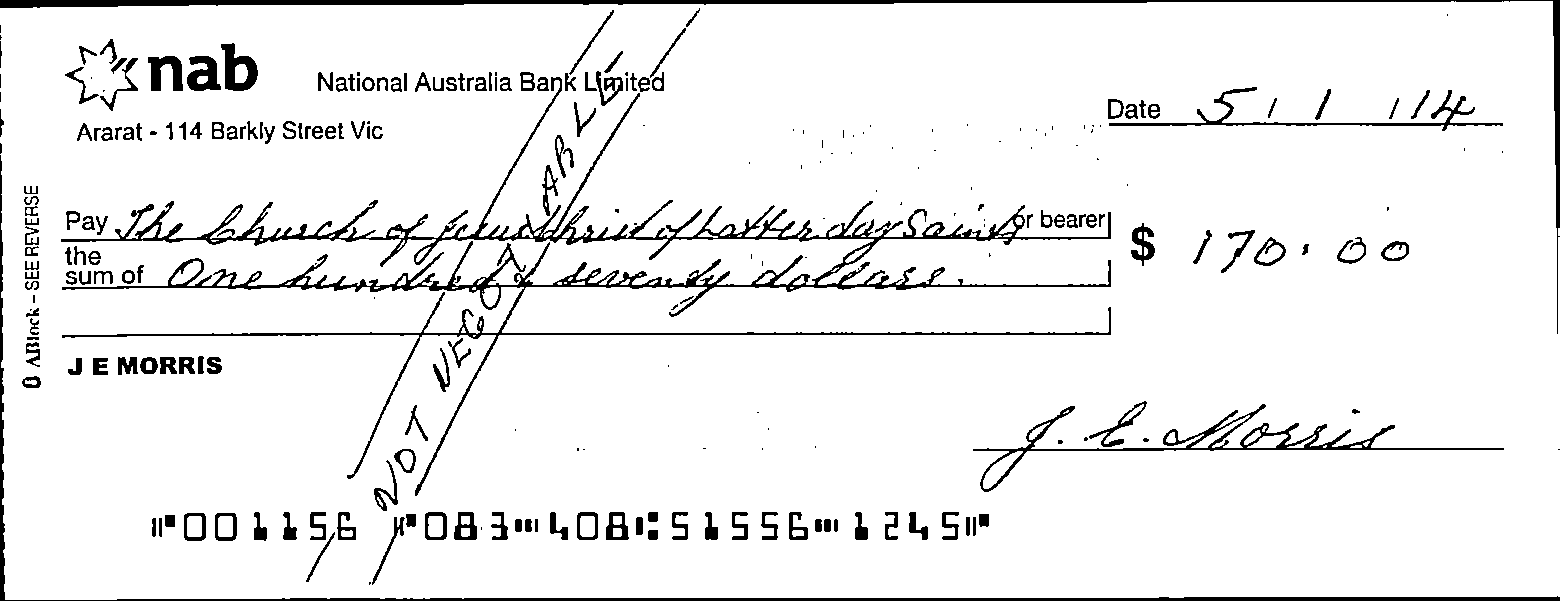 nab
National Australia Bank Limited
Ararat - 114 Barkly Street Vic
Date 5 / 1 / 14
Pay The Church of Jesus Christ of Latter day Saints or bearer
the sum of One hundred & seventy dollars.
$ 170.00
NOT NEGOTIABLE
J E MORRIS
J. E. Morris
⑈001156 ⑈083⑉408⑆51556⑉1245⑈
ABlock - SEE REVERSE